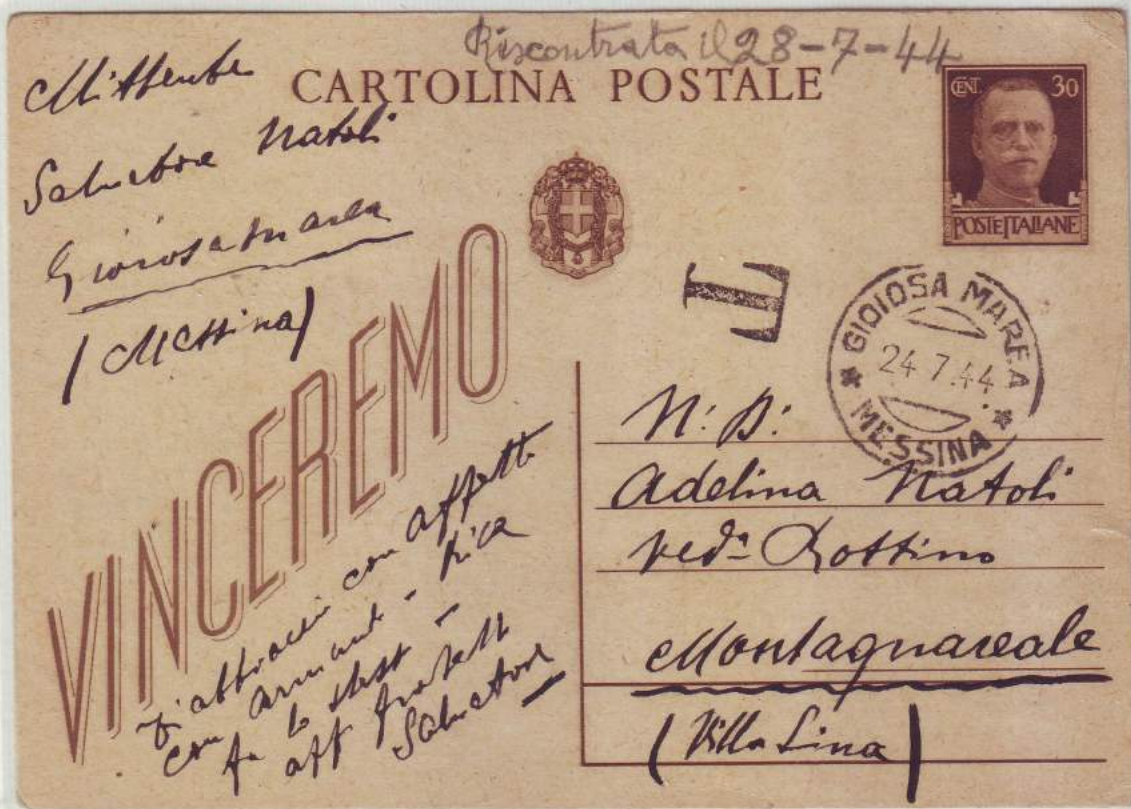 Riscontrata il 28-7-44
CARTOLINA POSTALE
CENT. 30
POSTE ITALIANE
Mittente
Salvatore Natoli
Gioiosa Marea
(Messina)
VINCEREMO
T
GIOIOSA MAREA
24.7.44
MESSINA
N. D.
Adelina Natoli
ved.a Rottino
Montagnareale
(Villa Lina)
T'abbraccio con affetto
con Armando - Rica
fa lo stesso -
aff fratello
Salvatore